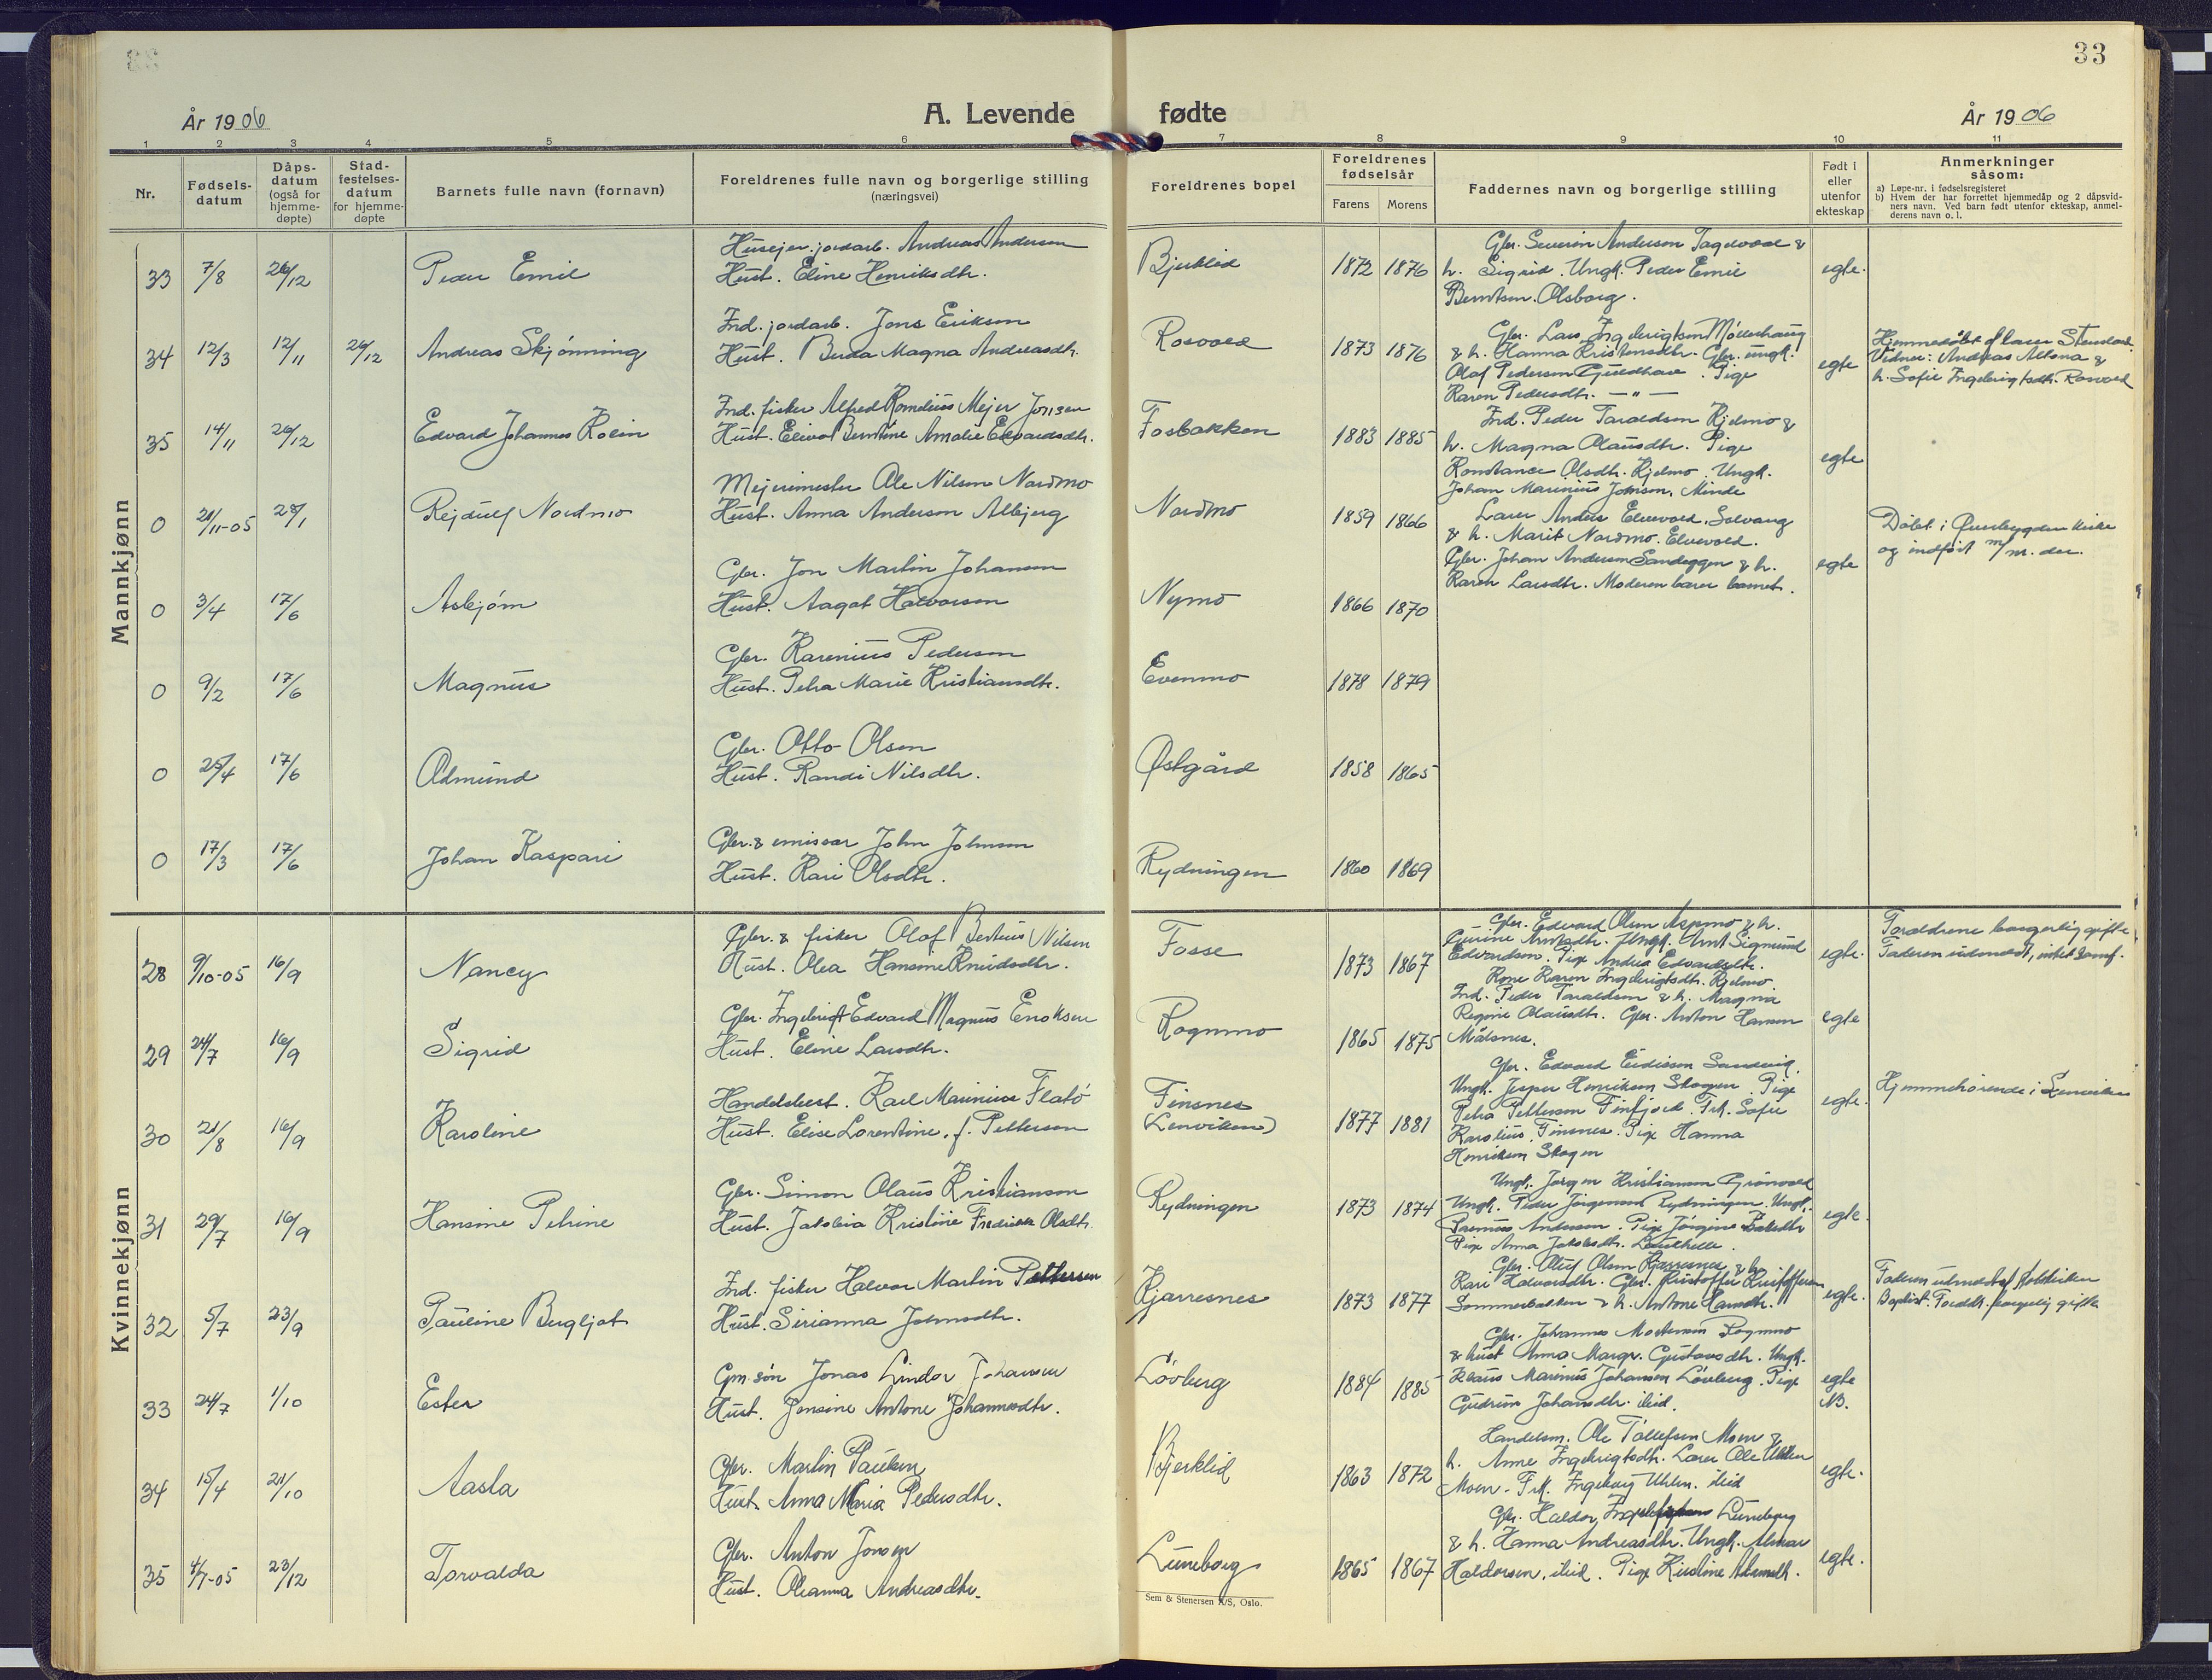 33
År 1906
A. Levende fødte
År 1906
1 2 3 4 5 6 7 8 9 10 11
Nr.
Fødsels-
datum
Dåps-
datum
(også for
hjemme-
døpte)
Stad-
festelses-
datum
for hjemme-
døpte
Barnets fulle navn (fornavn)
Foreldrenes fulle navn og borgerlige stilling
(næringsvei)
Foreldrenes bopel
Foreldrenes
fødselsår
Farens Morens
Faddernes navn og borgerlige stilling
Født i
eller
utenfor
ekteskap
Anmerkninger
såsom:
a) Løpe-nr. i fødselsregisteret
b) Hvem der har forrettet hjemmedåp og 2 dåpsvid-
ners navn. Ved barn født utenfor ekteskap, anmel-
derens navn o. l.
Mannkjønn
33 7/8 26/12 Peder Emil
Husejer. jordarb. Andreas Andersen
Hust. Eline Henriksdtr.
Bjerklid 1872 1876
Gbr. Severin Anderson &
h. Sigrid. Ungk. Peder Emil
Berntsen. Olsborg.
egte.
34 12/3 12/11 26/12 Andreas Skjønning
Ind. jordarb. Jens Erikson
Hust. Berda Magna Andreasdtr.
Rosvold 1873 1876
Gbr. Lars Ingebrigtsen Møllerhaug
& h. Hanna Kristensdtr. Gbr. ungk.
Olaf Pedersen . Pige
Karen Pedersdtr. — " —
egte
Hjemmedøbt af lærer
Vidner: Andreas Altona &
h. Sofie Ingebrigtsdtr. Rosvold
35 14/11 26/12 Edvard Johannes Kolin
Ind. fisker Alfred Kornelius Mejer Jonsen
Hust. Berntine Amalie Edvardsdtr.
Fosbakken 1883 1885
Ind. Peder Taraldsen Kjelmo &
h. Magna Olausdtr. Pige
Konstance Olsdtr. Kjelmo. Ungk.
Johan Marinius Johnsen, Minde
egte
0 21/11-05 28/1 Rejdulf Nordmo
Mejerimester Ole Nilsen Nordmo
Hust. Anna Anderson Albjerg
Nordmo 1859 1866
Lærer Anders Elvevold, Solvang
& h. Marit Nordmo. Elvevold.
Gbr. Johan Anderson Sandeggen & h.
Karen Larsdtr. Moderen barer barnet.
egte
Døbt i Øverbygden kirke
og indført m/m. der.
0 3/4 17/6 Asbjørn
Gbr. Jon Martin Johansen
Hust. Aagot Halvorsen
Nymo 1866 1870
0 9/2 17/6 Magnus
Gbr. Karenius Pederson
Hust. Petra Marie Kristiansdtr.
Evenmo 1878 1879
0 25/4 17/6 Odmund
Gbr. Otto Olsen
Hust. Randi Nilsdtr.
Østgård 1858 1865
0 17/3 17/6 Johan Kaspari
Gbr. & emissær John Johnson
Hust. Kari Olsdtr.
Rydningen 1860 1869
Kvinnekjønn
28 9/10-05 16/9 Nancy
Gbr. & fisker Olaf Berteus Nilsen
Hust. Olea Hansine Knudsdtr.
Fosse 1873 1867
Gbr. Edvard Olsen Aspmo & h.
Gurine Arntsdtr. Ungk. Arnt Sigmund
Edvardsen. Pige Andrea Edvardsdtr.
egte.
Forældrene borgerlig gifte
Faderen udmeldt, intet samf.
29 24/7 16/9 Sigrid
Gbr. Ingebrigt Edvard Magnus Enoksen
Hust. Eline Larsdtr.
Rognmo 1865 1875
Kone Karen Ingebrigtsdtr. Kjelmo
Ind. Peder Taraldsen & h. Magna
Regine Olausdtr. Gbr. Anton Hansen
Målsnes.
egte
30 21/8 16/9 Karoline
Handelsbest. Karl Marinius Flatø
Hust. Elise Lorentine, f. Pettersen
Finsnes
(Lenviken) 1877 1881
Gbr. Edvard Sandvig.
Ungk. Jesper Henriksen Skogen. Pige
Petra Pettersen Finfjord. Frk. Sofie
Karolius, Finsnes. Pige Hanna
Henriksen Skogen
egte.
Hjemmehørende i Lenviken
31 29/7 16/9 Hansine Petrine
Gbr. Simon Olaus Kristianson
Hust. Jakobia Kristine Fredrikke Olsdtr.
Rydningen 1873 1874
Ungk. Jørgen Kristianson Grønvold
Ungk. Peder Jørgensen Rydningen. Ungk.
Rasmus Andersen. Pige Jørgine
Pige Anna Jakobsdtr.
egte.
32 5/7 23/9 Pauline Bergljot
Ind. fisker Halvor Martin Pettersen
Hust. Sirianna Johnsdtr.
Kjærresnes 1873 1877
Gbr. Oluf Olsen Kjærresnes & h.
Kari Halvorsdtr. Gbr. Kristoffer Kristoffersen
Sommerbakken & h. Antone Hansdtr.
egte.
Faderen udmeldt af statskirken
Baptist. Foreldr. borgerlig gifte
33 24/7 1/10 Ester
Gm.søn Jonas Lindor Johansen
Hust. Jensine Antone Johannesdtr.
Løvberg 1884 1885
Gbr. Johannes Mortensen Rognmo
& hust Anna Margr. Gustavsdtr. Ungk.
Klaus Marinus Johansen Løvberg. Pige
Gudrun Johansdtr. ibid.
egte
NB.
34 15/4 21/10 Aasla
Gbr. Martin Paulsen
Hust. Anna Maria Pedersdtr.
Bjerklid 1863 1872
Handelsm. Ole Tollefsen Moen &
h. Anne Ingebrigtsdtr. Lærer Ole Uhlen
Moen. Frk. Ingeborg Uhlen. ibid
egte.
35 4/7-05 23/12 Torvalda
Gbr. Anton Jonsen
Hust. Oleanna Andreasdtr.
Luneborg 1865 1867
Gbr. Haldor Luneborg
& h. Hanna Andreasdtr. Ungk. Almar
Haldorsen, ibid. Pige Kristine
egte.
Sem & Stenersen A/S, Oslo.